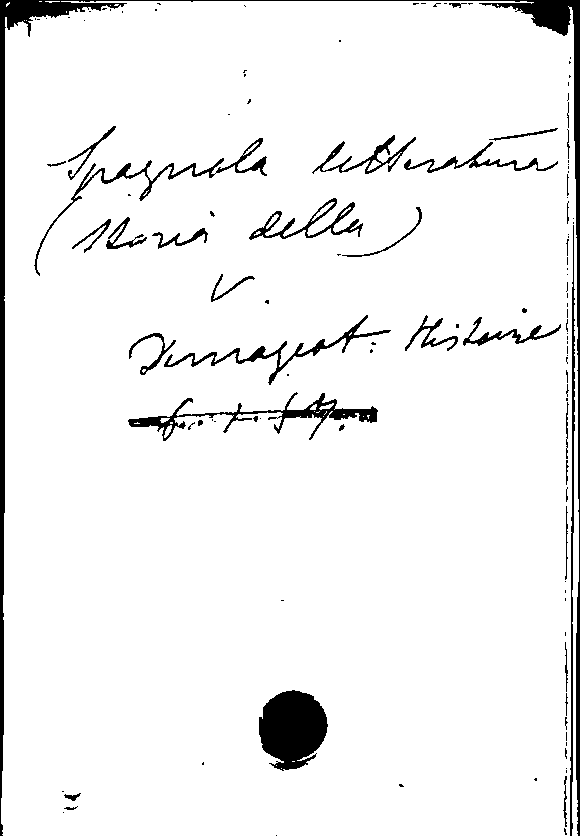 Spagnola letteratura
(storia della)
V.
Demogeot: Histoire